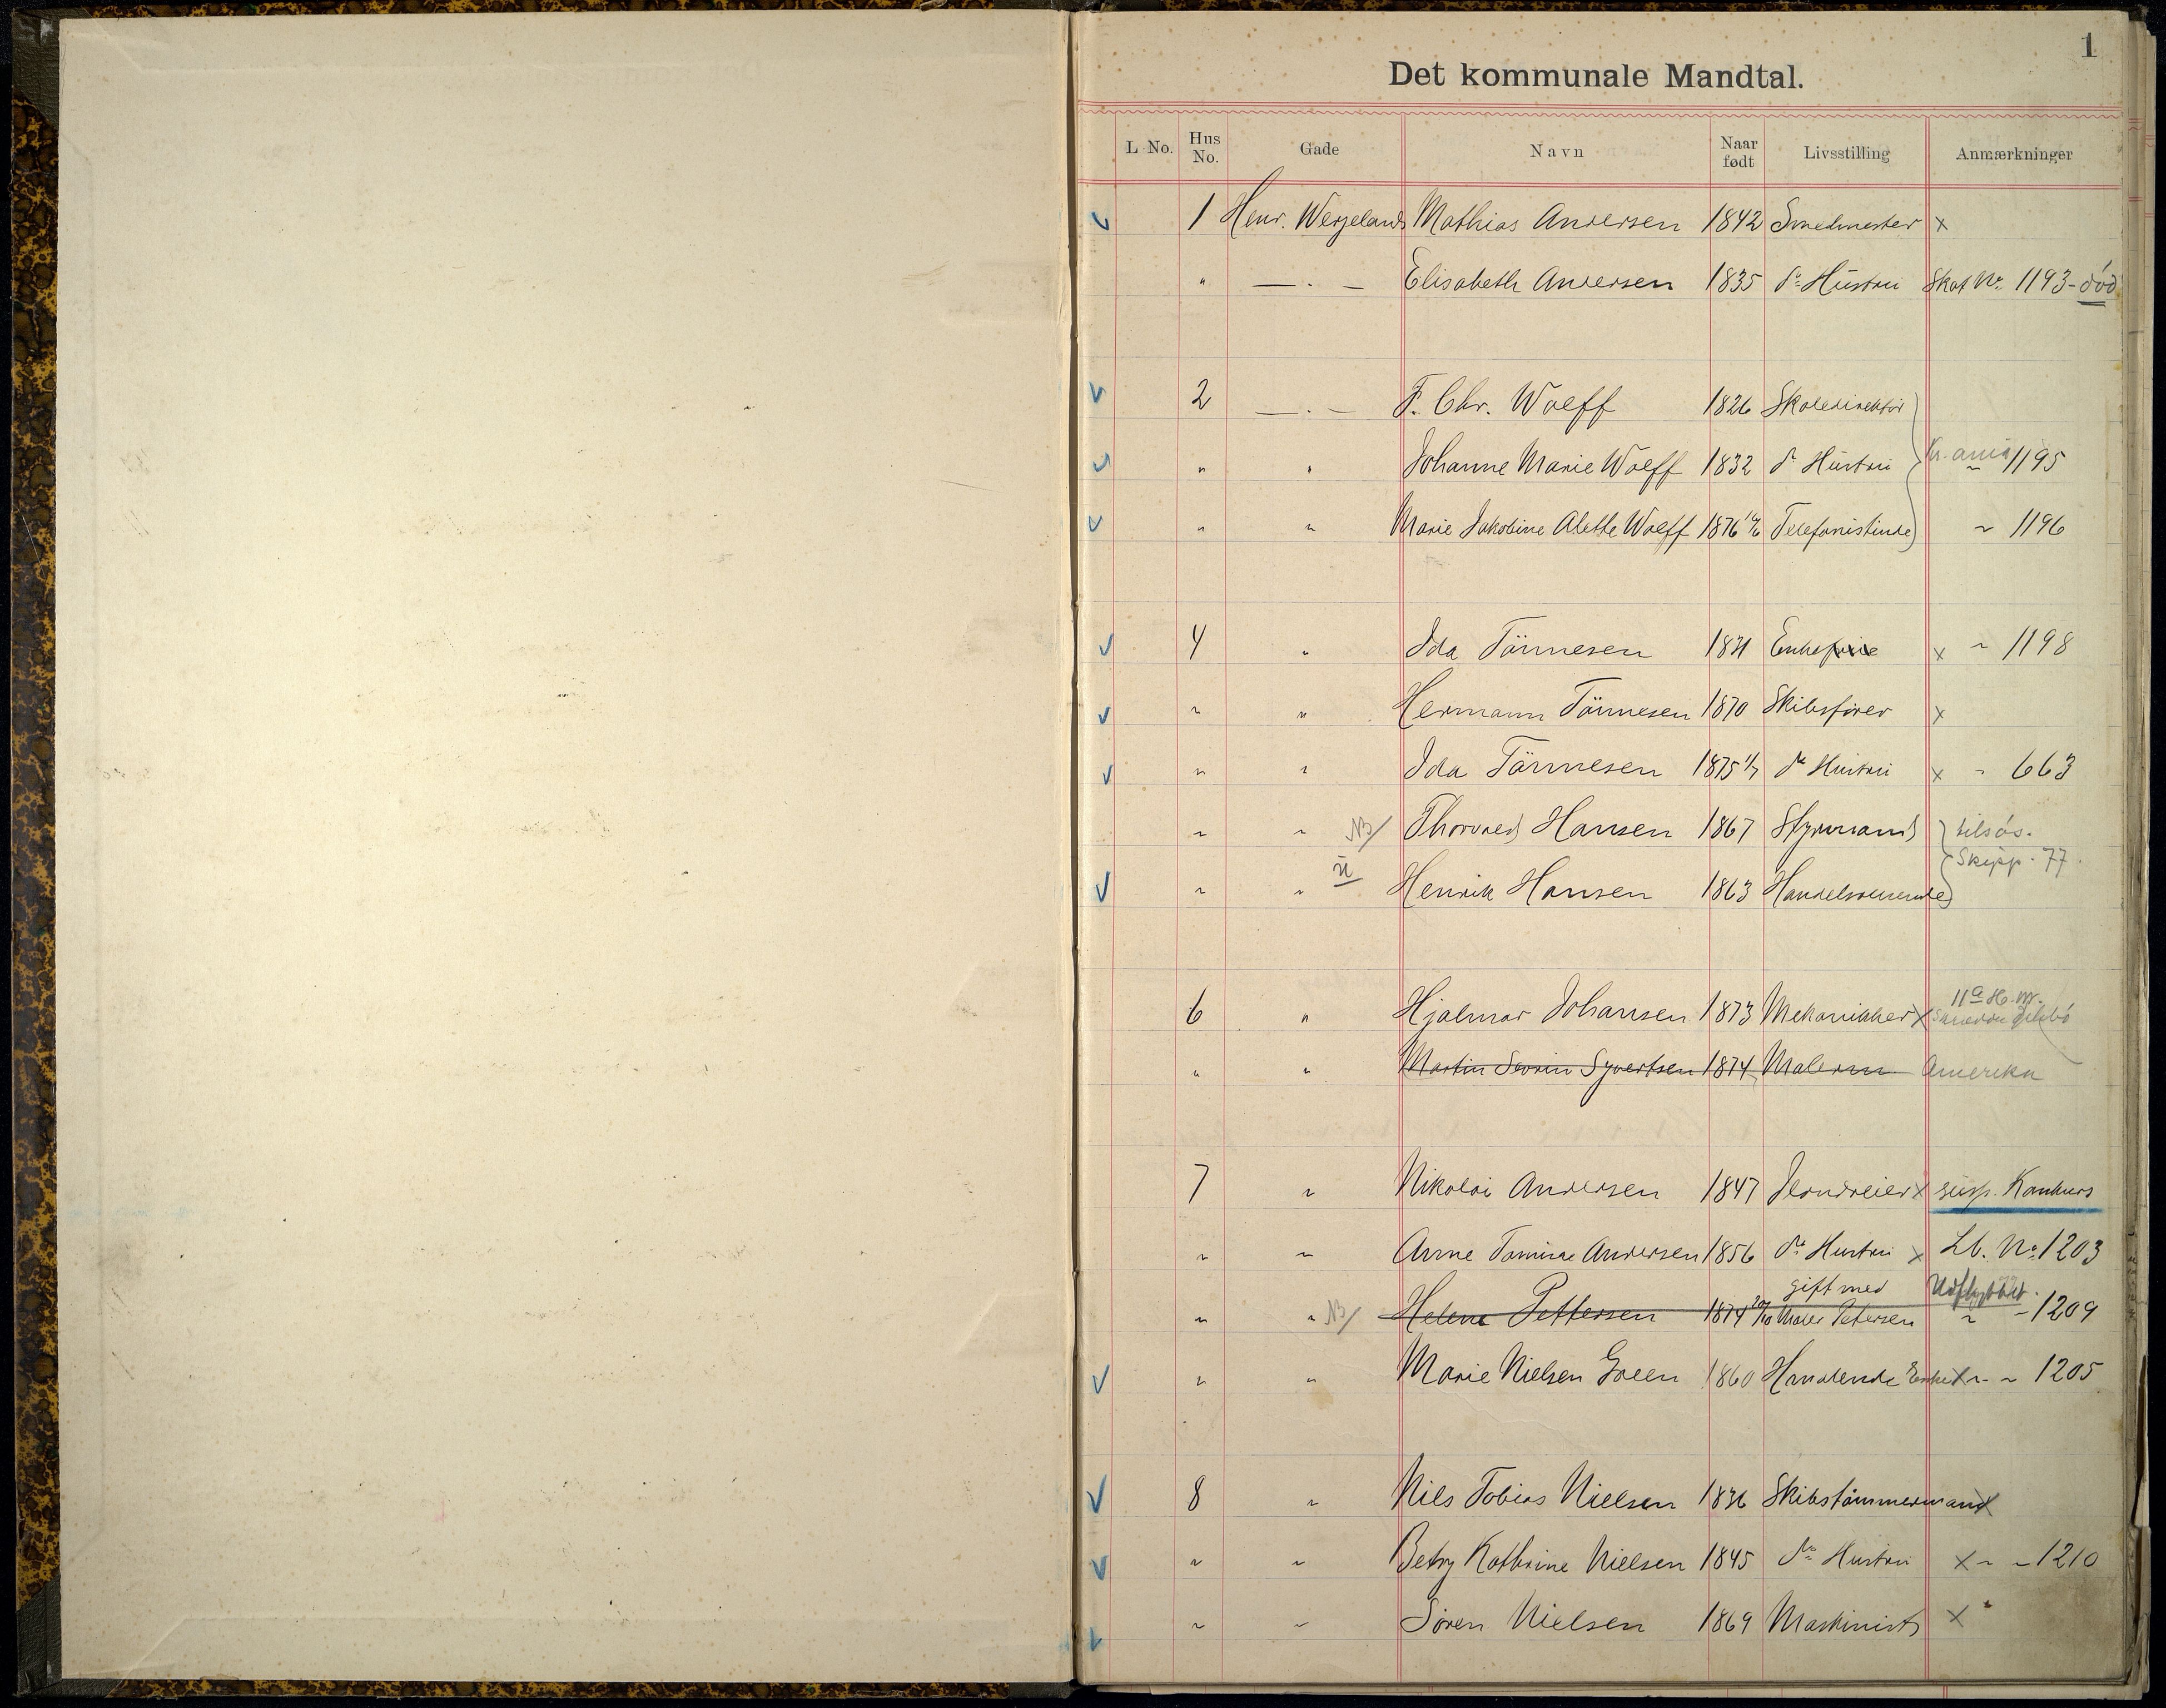 1
Det kommunale Mandtal.
L No. Hus No. Gade Navn Naar født Livsstilling Anmærkninger
1 Henr. Wergelands Mathias Andersen 1842 Smedmester x
" — . — Elisabeth Andersen 1835 Ds Hustru Skat No. 1193 - död
2 — . — F. Chr. Wolff 1826 Skoledirektör
" " Johanne Marie Wolff 1832 Ds Hustru Kr.ania " 1195
" " Marie Jakobine Alette Wolff 1876 Telefonistinde " 1196
4 " Ida Tönnesen 1831 Enkefrue x " 1198
" " Hermann Tönnesen 1870 Skibsfører x
" " Ida Tönnesen 1875 1/7 Ds Hustru x " 663
" " NB/ Thorvald Hansen 1867 Styrmand tilsös.
Skipp. 77.
" " Henrik Hansen 1863 Handelsreisende
11a H.W.
6 " Hjalmar Johansen 1873 Mekanikker x
" " Martin Severin Syvertsen 1874 Malersv Amerika
7 " Nikolai Andersen 1847 Jerndreier x susp. Konkurs
" " Anne Tomine Andersen 1856 Ds Hustru x Lb. No. 1203
gift med Udflyttet.
" " NB/ Helene Pettersen 1874 Maler Petersen " - 1209
" " Marie Nielsen Green 1860 Handlende Enke x " " 1205
8 " Nils Tobias Nielsen 1836 Skibstömmermand x
" " Betzy Kathrine Nielsen 1845 Ds Hustru x " " 1210
" " Sören Nielsen 1869 Maskinist x "